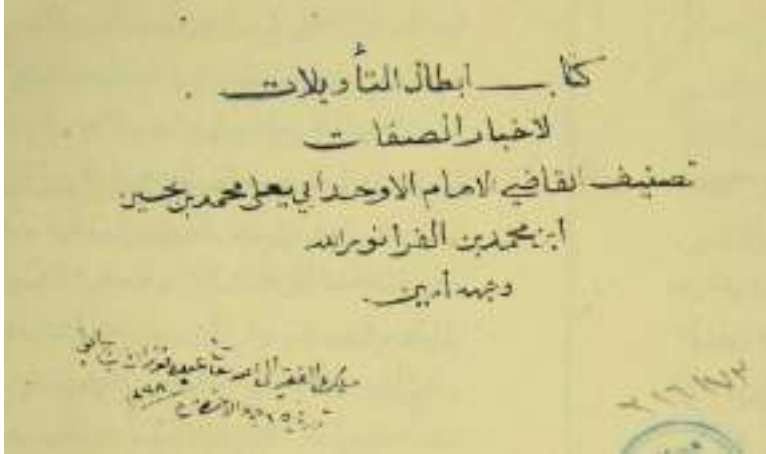 كتاب ابطال التأويلات
لاخبار الصفات
تصنيف القاضي الامام الاوحد ابي يعلى محمد بن حسين
ابن محمد بن الفرا نور الله
وجهه امين
ملك الفقير الى الله تعالى